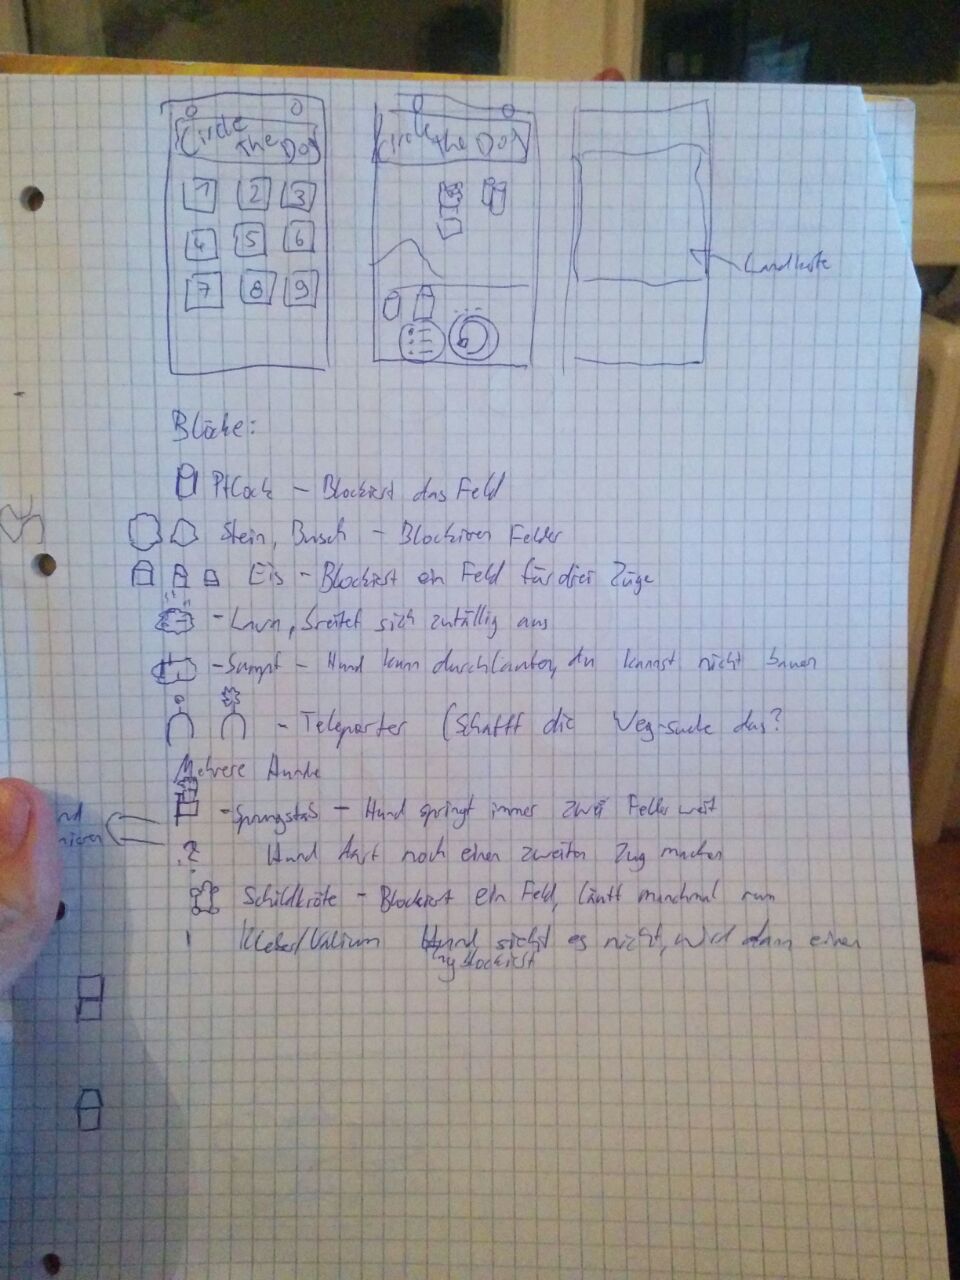 Circle The Dog
1 2 3
4 5 6
7 8 9
Circle The Dog
Landkarte
Blöcke:
Pflock - Blockiert das Feld
Stein, Busch - Blockieren Felder
Eis - Blockiert ein Feld für drei Züge
- Lava, breitet sich zufällig aus
- Sumpf - Hund kann durchlaufen, du kannst nicht bauen
- Teleporter (Schafft die Weg-suche das?
Mehrere Hunde
- Sprungstab - Hund springt immer zwei Felder weit
? Hund darf noch einen zweiten Zug machen
Schildkröte - Blockiert ein Feld, läuft manchmal rum
Kleber/Valium Hund sieht es nicht, wird dann einen
Zug blockiert